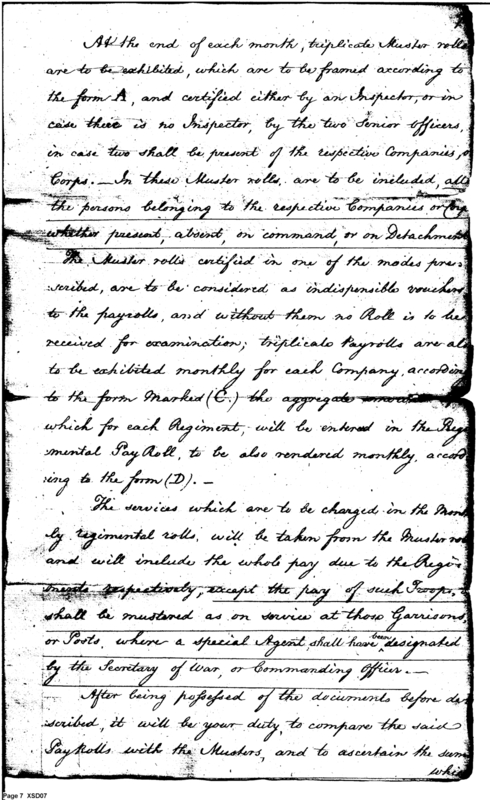 At the end of each month, triplicate Muster rolls
are to be exhibited, which are to be framed according to
the form A, and certified either by an Inspector, or in
case there is no Inspector, by the two Senior officers,
in case two shall be present of the respective Companies, o
Corps. — In these Muster rolls, are to be included, all
the persons belonging to the respective Companies or Corps
whether present, absent, on command, or on Detachment
The Muster rolls certified in one of the modes pre=
scribed, are to be considered as indispensible vouchers
to the payrolls, and without them no Roll is to be
received for examination; triplicate Payrolls are als
to be exhibited monthly for each Company, accordin
to the form Marked (C.) the aggregate amount of
which for each Regiment, will be entered in the Regi
mental Pay Roll, to be also rendered monthly, accord
ing to the form (D). —
The services which are to be charged in the Month
ly regimental rolls, will be taken from the Muster rol
and will include the whole pay due to the Regi=
ments respectively, except the pay of such Troops,
shall be mustered as on service at those Garrisons,
or Posts, where a special Agent shall have been designated
by the Secretary of War, or Commanding officer. —
After being possessed of the documents before de
scribed, it will be your duty, to compare the said
Pay Rolls with the Musters, and to ascertain the sum
whi
Page 7 XSD07